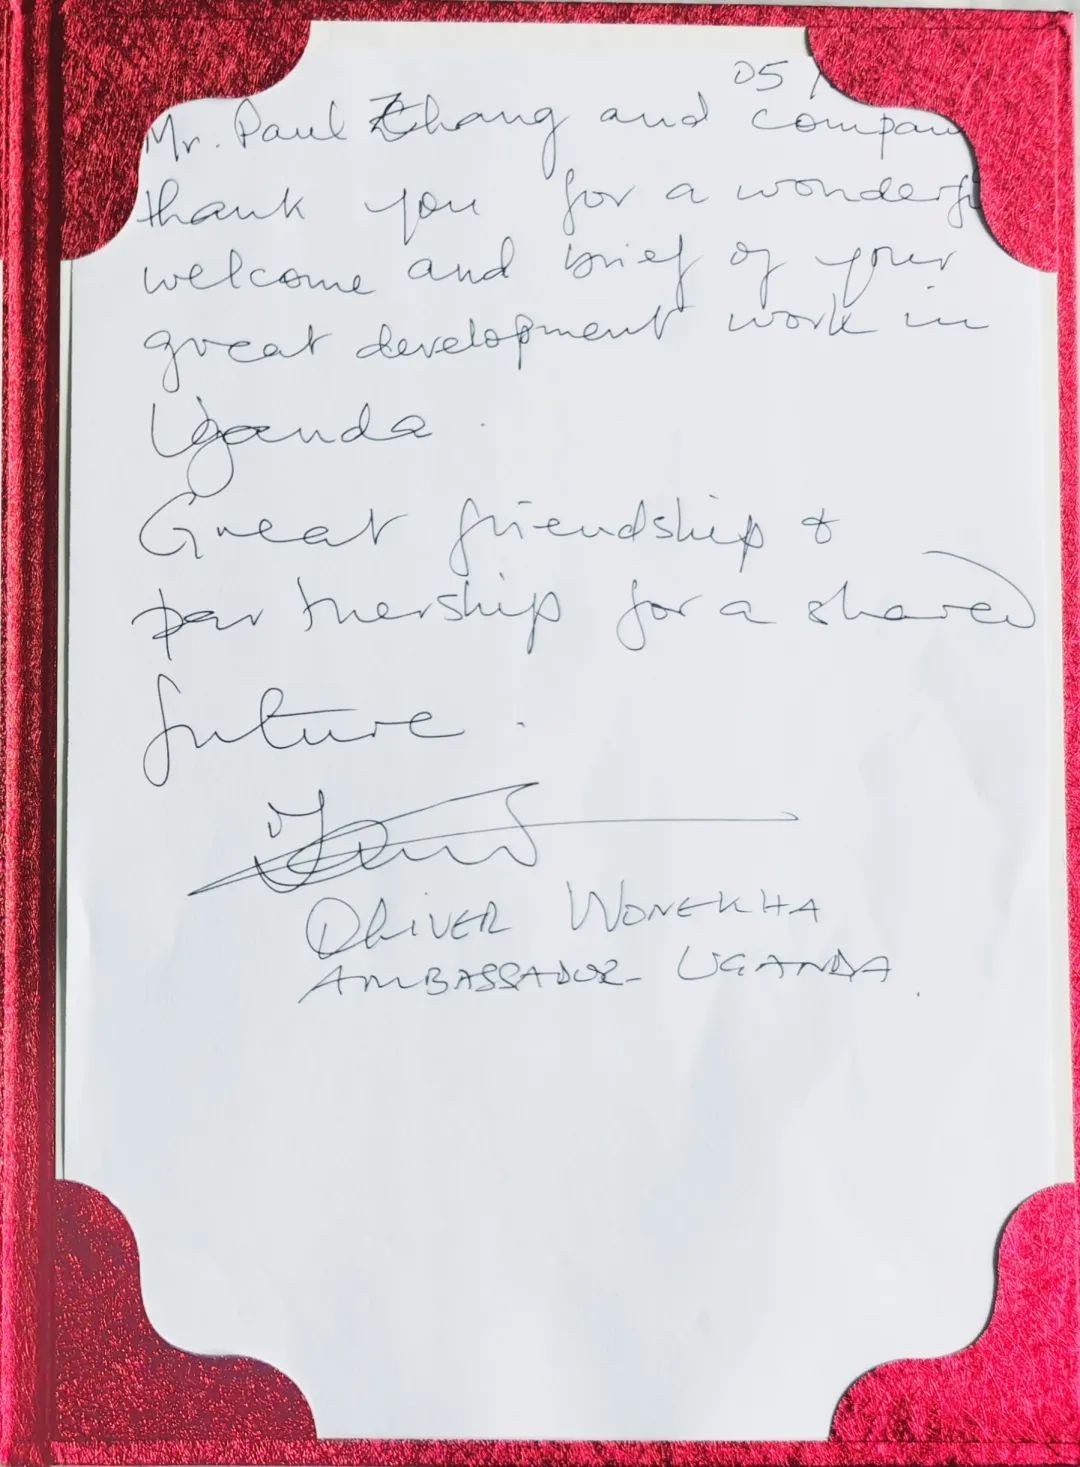 05 /
Mr. Paul Zhang and compan
thank you for a wonderf
welcome and brief of your
great development work in
Uganda.
Great friendship &
partnership for a shared
future.
OLIVER WONEKHA
AMBASSADOR - UGANDA.